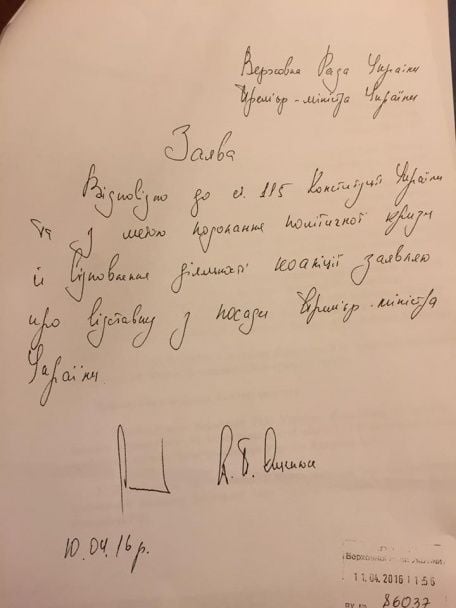 Верховна Рада України
Прем'єр-міністра України
Заява
Відповідно до ст. 115 Конституції України
та з метою подолання політичної кризи
й відновлення діяльності коаліції заявляю
про відставку з посади Прем'єр-міністра
України.
А. П. Яценюк
10.04.16 р.
Верховна Рада України
11.04.2016 11:56
86037